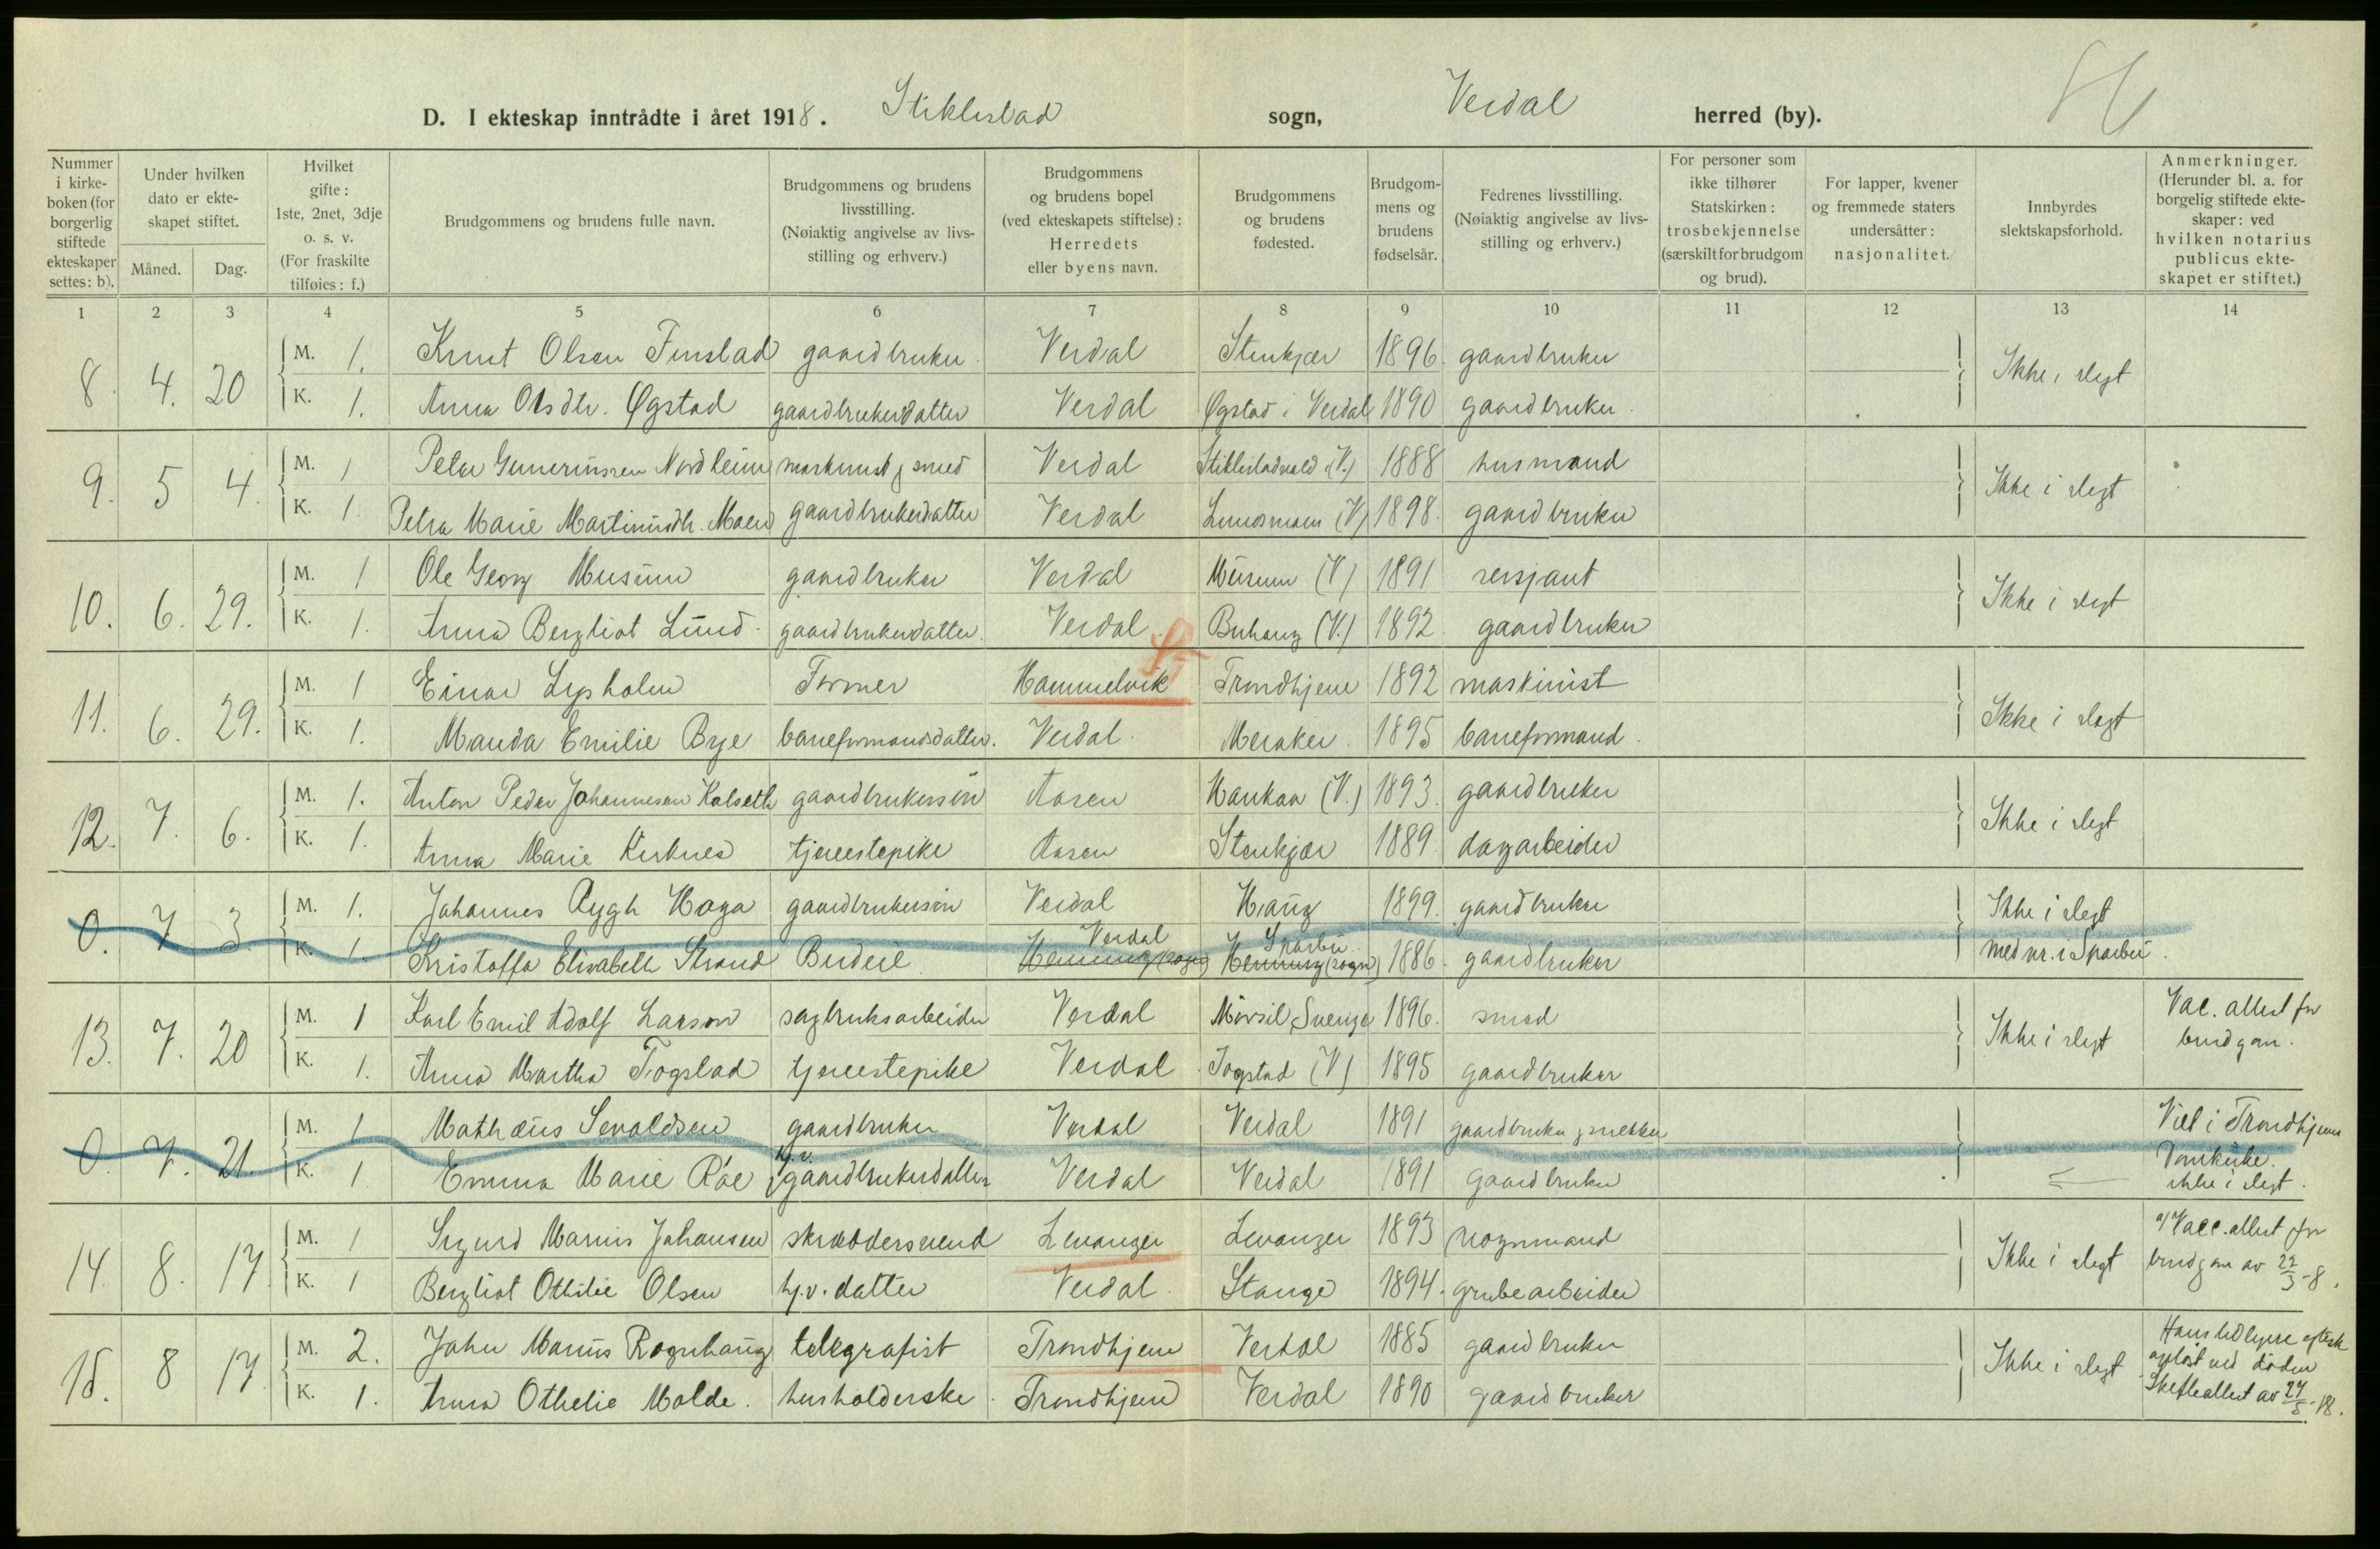 D. I ekteskap inntrådte i året 1918. Stiklestad sogn, Verdal herred (by).
Nummer i kirkeboken (for borgerlig stiftede ekteskaper settes: b).
Under hvilken dato er ekteskapet stiftet.
Måned. Dag.
Hvilket gifte: 1ste, 2net, 3dje o. s. v. (For fraskilte tilføies: f.)
Brudgommens og brudens fulle navn.
Brudgommens og brudens livsstilling. (Nøiaktig angivelse av livsstilling og erhverv.)
Brudgommens og brudens bopel (ved ekteskapets stiftelse): Herredets eller byens navn.
Brudgommens og brudens fødested.
Brudgommens og brudens fødselsår.
Fedrenes livsstilling. (Nøiaktig angivelse av livsstilling og erhverv.)
For personer som ikke tilhører Statskirken: trosbekjennelse (særskilt for brudgom og brud).
For lapper, kvener og fremmede staters undersåtter: nasjonalitet.
Innbyrdes slektskapsforhold.
Anmerkninger. (Herunder bl. a. for borgelig stiftede ekteskaper: ved hvilken notarius publicus ekteskapet er stiftet.)
1 2 3 4 5 6 7 8 9 10 11 12 13 14
8. 4. 20 M. 1. Knut Olsen Finstad gaardbruker Verdal Stenkjær 1896. gaardbruker Ikke i slegt
K. 1. Anna Olsdtr. Øgstad gaardbrukerdatter Verdal Øgstad i Verdal 1890 gaardbruker.
9. 5 4. M. 1 Peter Nordheim maskinist & smed Verdal (V.) 1888 husmand Ikke i slegt
K. 1. Petra Marie Martinusdtr. Moen gaardbrukerdatter Verdal (V) 1898. gaardbruker
10. 6. 29. M. 1 Ole Georg Musum gaardbruker Verdal Musum (V) 1891 sersjant Ikke i slegt
K. 1. Anna Bergliot Lund gaardbrukerdatter. Verdal. Buhaug (V.) 1892 gaardbruker
11. 6. 29. M. 1 Einar Lysholm Former Hammelvik Trondhjem 1892 maskinist Ikke i slegt
K. 1. Manda Emilie Bye baneformandsdatter. Verdal. Meraker. 1895 baneformand.
12. 7. 6. M. 1. Anton Peder Johannesen Kolseth gaardbrukersøn Aasen Haukaa (V.) 1893. gaardbruker Ikke i slegt
K. 1. Anna Marie Kirknes tjenestepike Aasen Stenkjær 1889. dagarbeider
0. 7 3. M. 1. Johannes Rygh Haga gaardbrukersøn Verdal Haug 1899. gaardbruker Ikke i slegt
K. 1. Kristoffa Elisabeth Strand Budeie Henning (sogn) Verdal Henning (sogn) Sparbu 1886. gaardbruker med nr. i Sparbu.
13. 7. 20 M. 1 Karl Emil Adolf Larson sagbruksarbeider Verdal Mörsil, Sverige 1896. smed Ikke i slegt Vac. attest for brudgom.
K. 1. Anna Martha Togstad tjenestepike Verdal Togstad (V) 1895 gaardbruker
0. 7. 21. M. 1 Mathæus Sevaldsen gaardbruker Verdal Verdal 1891 gaardbruker & snekker Viet i Trondhjems
K. 1 Emma Marie Røe hj.v. gaardbrukerdatter Verdal Verdal 1891 gaardbruker Domkirke. ikke i slegt.
14. 8. 17. M. 1 Sigurd Marius Johansen skræddersvend Levanger Levanger 1893 vognmand Ikke i slegt Vacc. attest for
K. 1 Bergliot Othilie Olsen hj.v. datter Verdal. Stange 1894. grubearbeider brudgom av 22/3-8.
15. 8 17. M. 2. John Marius Rognhaug telegrafist Trondhjem Verdal 1885 gaardbruker Ikke i slegt Hans tidligere ektesk. opløst ved døden
K. 1. Anna Othelie Molde. husholderske. Trondhjem Verdal 1890 gaardbruker Skifteattest av 27/5-18.